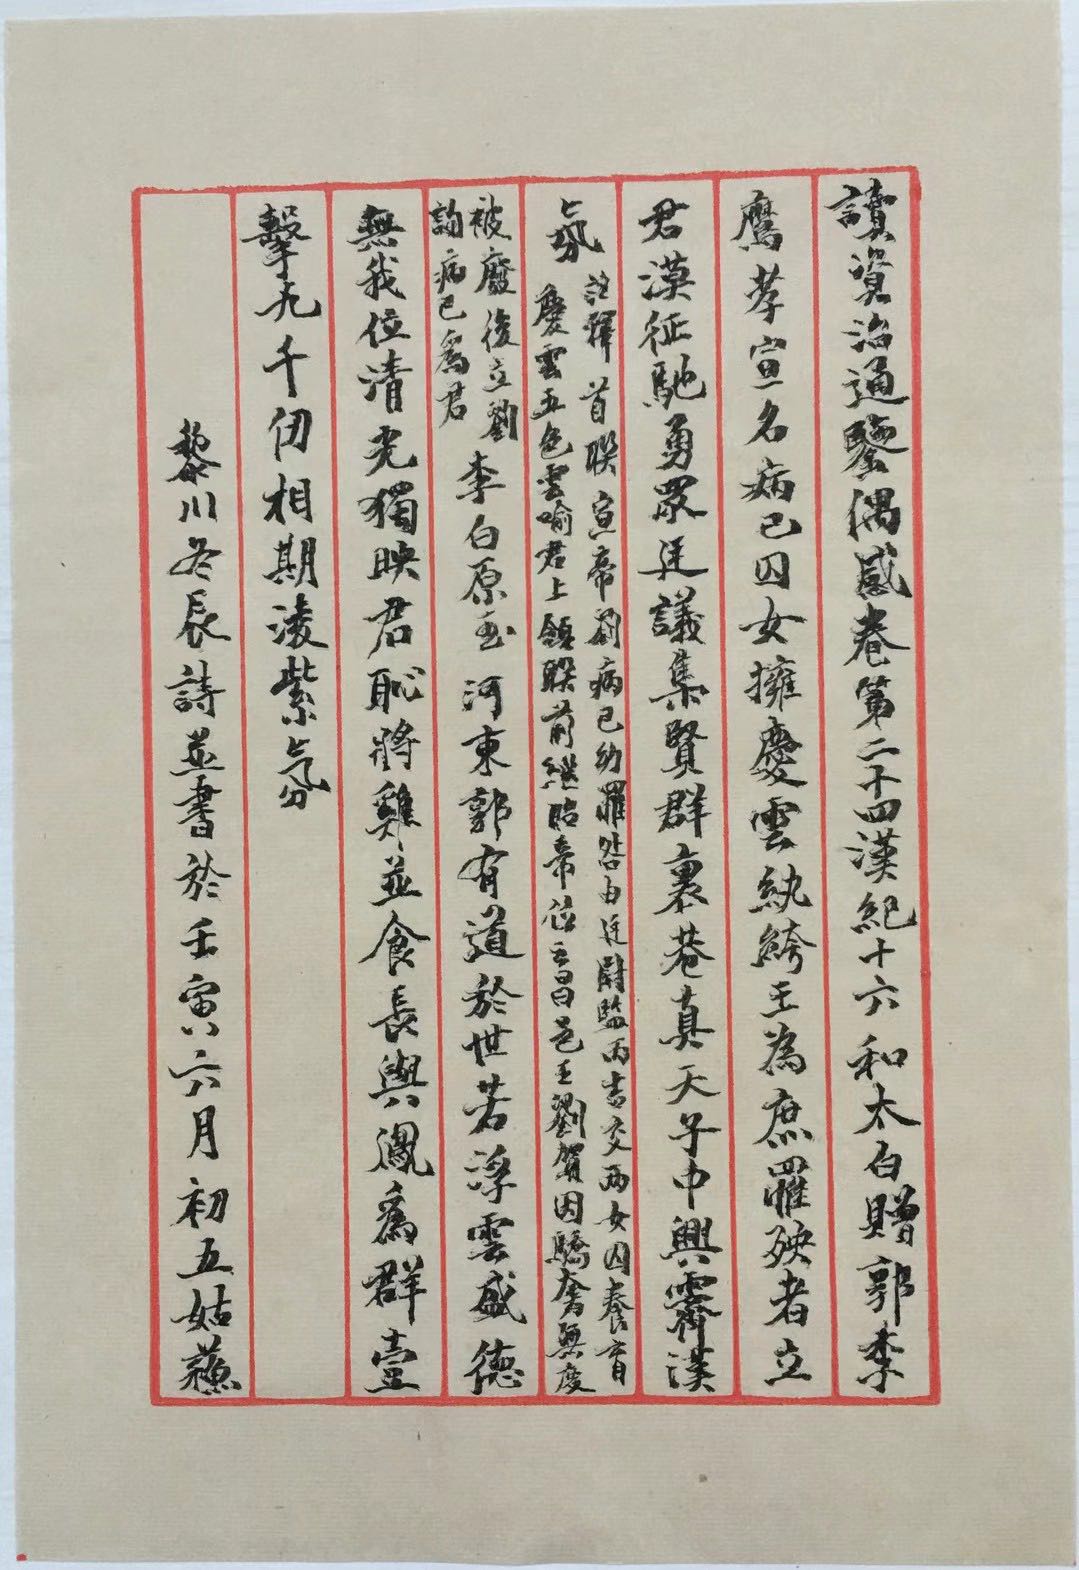 讀資治通鑒偶感卷第二十四漢紀十六和太白贈郭季
鷹孝宣名病已囚女擁慶雲紈絝王為庶罹殃者立
君漠征馳勇眾廷議集賢群裏巷真天子中興霽漢
氛
註釋首聯宣帝劉病已幼罹咎由廷尉監丙吉交两女囚養育
慶雲五色雲喻君上頷聯前繼昭帝位昌邑王劉賀因驕奢無度
被廢後立劉
詢病已為君
李白原玉河東郭有道於世若浮雲盛德
無我位清光獨映君恥將雞並食長與鳳為群壹
擊九千仞相期淩紫氛
黎川冬長詩並書於壬寅六月初五姑蘇